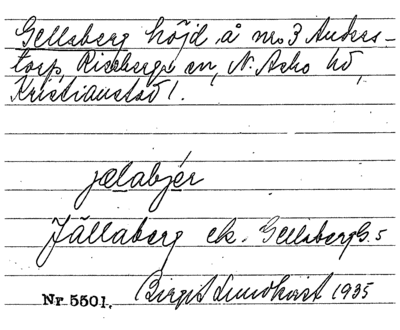 Gellsberg höjd å nr 3 Anders-
torp, Riseberga sn, N. Åsbo hd,
Kristianstad l.
jælabjér
Jällaberg ek. Gellsberg G. 5
Nr. 5501. Birgit Lundkvist 1935